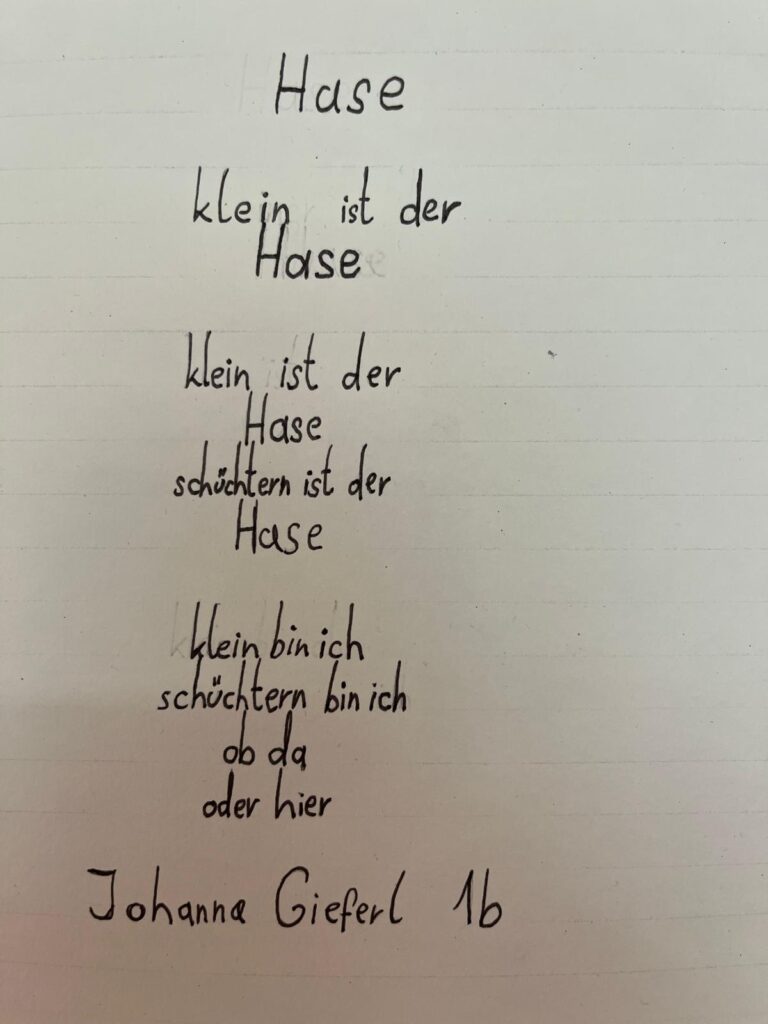 Hase
klein ist der
Hase
klein ist der
Hase
schüchtern ist der
Hase
klein bin ich
schüchtern bin ich
ob da
oder hier
Johanna Gieferl 1b